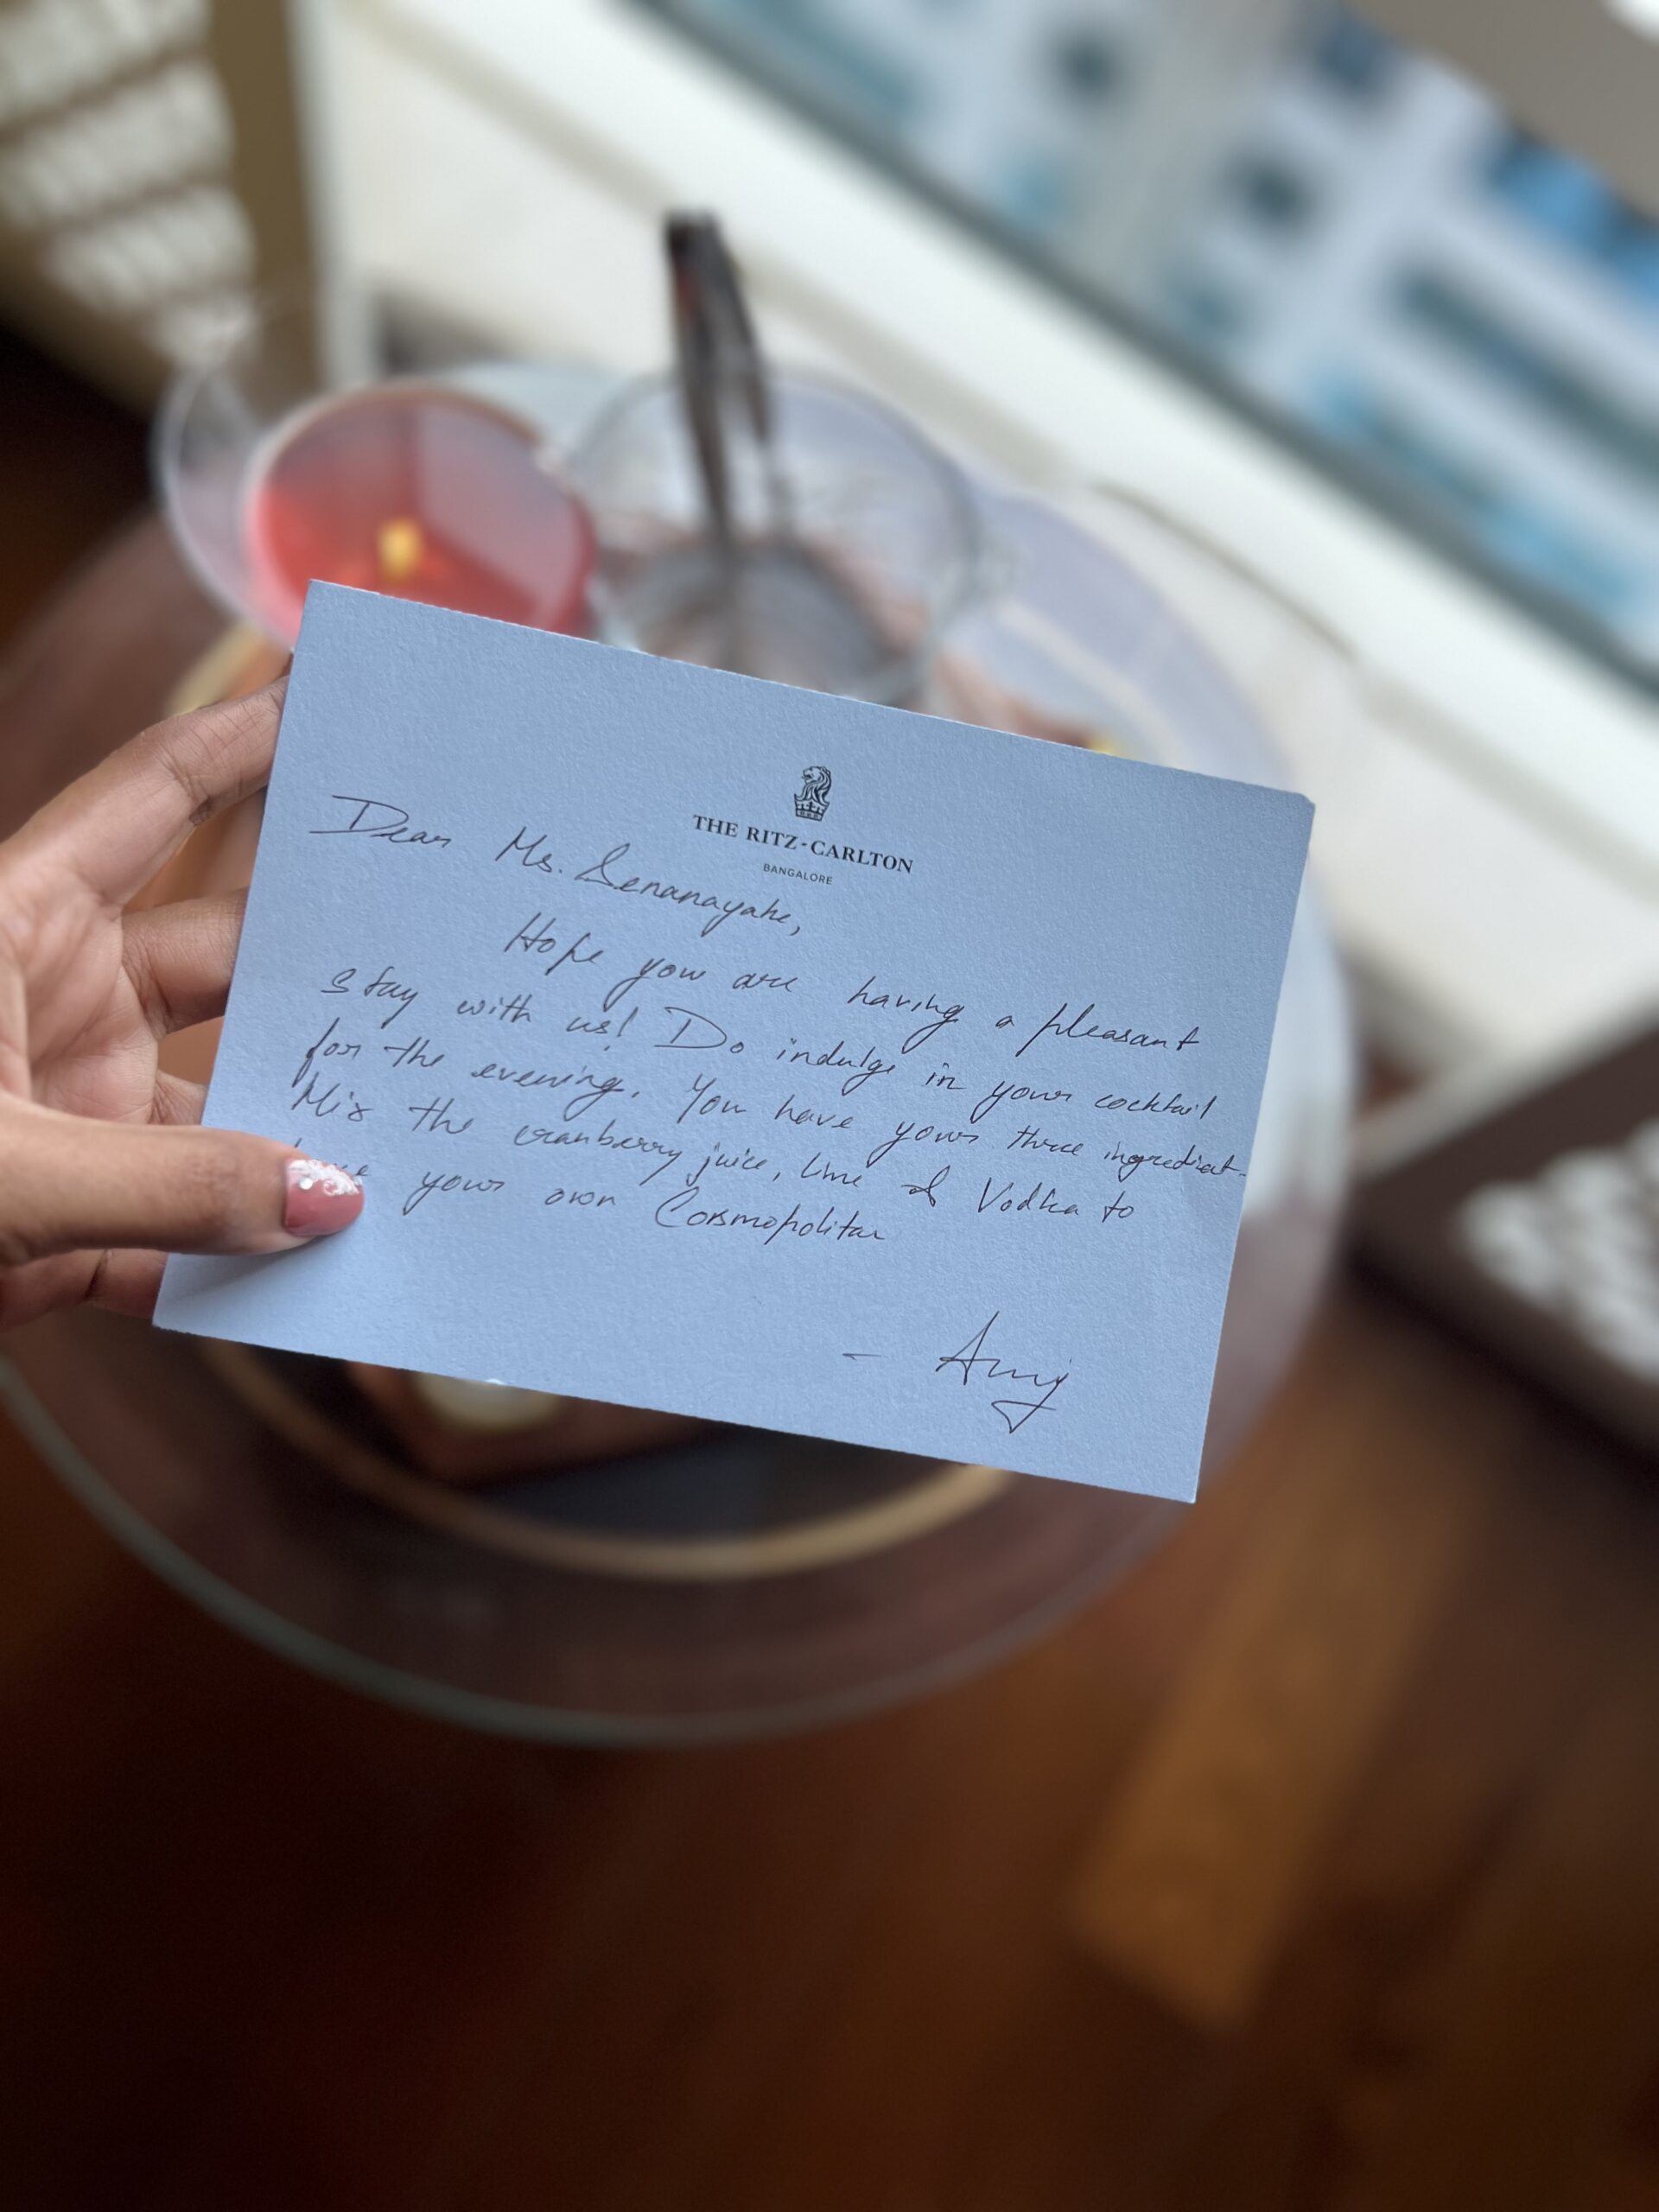 THE RITZ-CARLTON
BANGALORE
Dear Ms. Senanayake,
Hope you are having a pleasant
stay with us! Do indulge in your cocktail
for the evening. You have your three ingredient-
Mix the cranberry juice, lime & Vodka to
your own Cosmopolitan
-